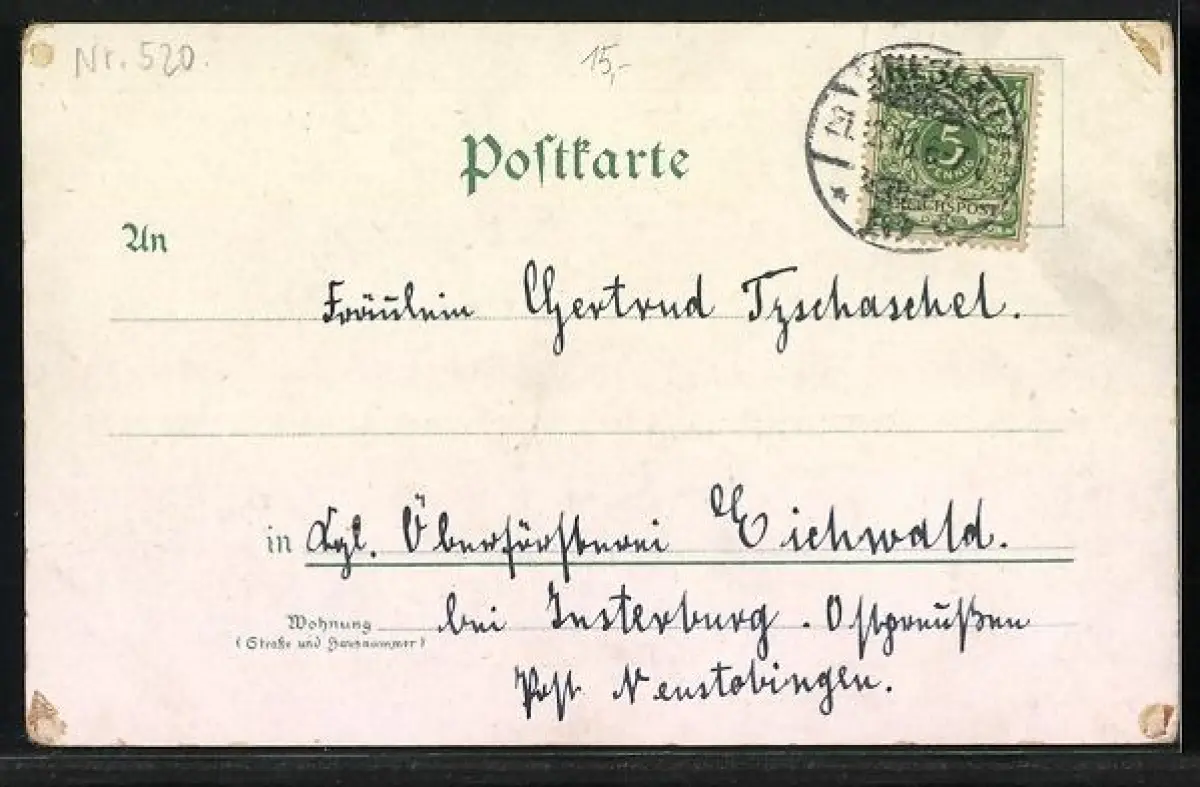 Nr. 520.
15,-
Postkarte
BRESLAU
5
PFENNIG
REICHSPOST
An
Fräulein Gertrud Tzschaschel.
in Kgl. Oberförsterei Eichwald.
Wohnung bei Insterburg. Ostpreußen
(Straße und Hausnummer)
Post Neustobingen.